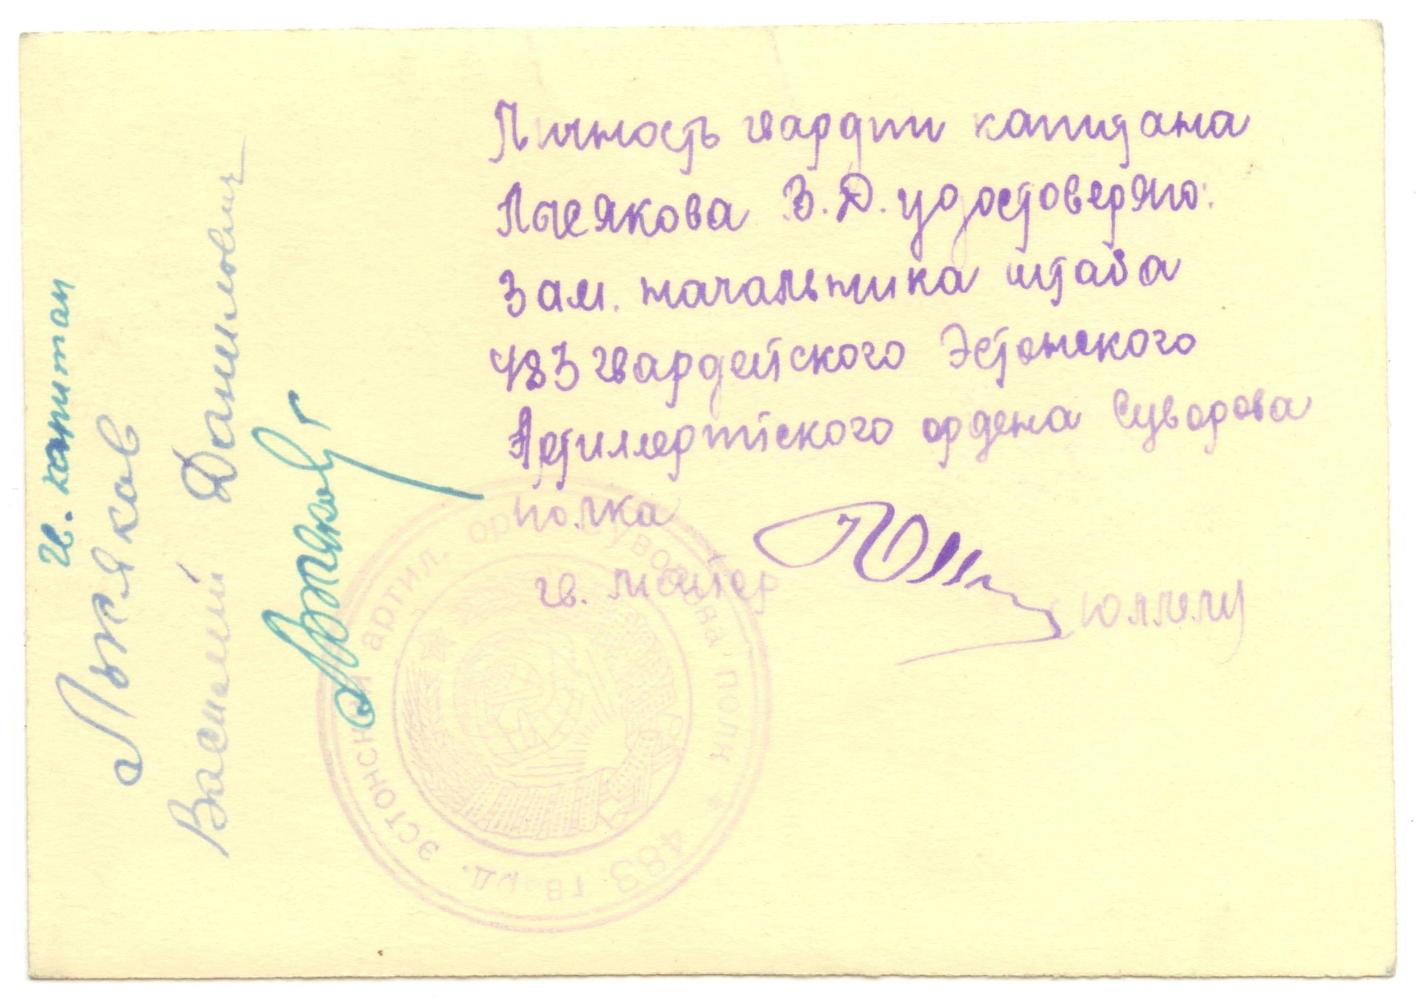 гв. капитан
Лысяков
Василий Данилович
Личность гвардии капитана
Лысякова В.Д. удостоверяю:
Зам. начальника штаба
483 гвардейского Эстонского
Артиллерийского ордена Суворова
полка
гв. майор
483 ГВАРД. ЭСТОНСКИЙ АРТИЛ. ОРД. СУВОРОВА ПОЛК *